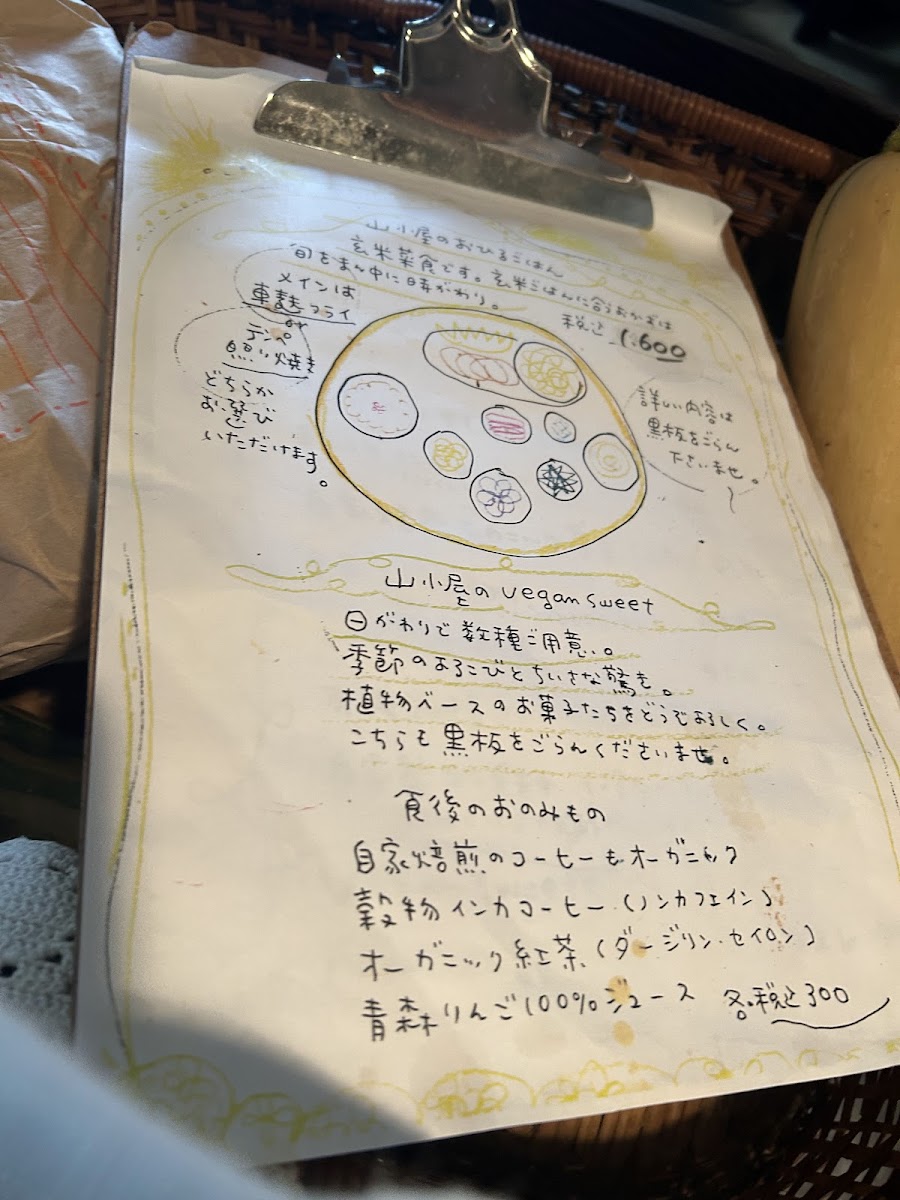 山小屋のおひるごはん
玄米菜食です。玄米ごはんに合うおかずは
旬をまん中に日替がわり。
税込 1,600
メインは
車麩フライ
or
テンペ
照り焼き
どちらか
お選び
いただけます。
詳しい内容は
黒板をごらん
下さいませ。
山小屋の vegan sweet
日がわりで数種ご用意。
季節のよろこびとちいさな驚き。
植物ベースのお菓子たちをどうぞよろしく。
こちらも黒板をごらんくださいませ。
食後のおのみもの
自家焙煎のコーヒーもオーガニック
穀物インカコーヒー(ノンカフェイン)
オーガニック紅茶(ダージリン・セイロン)
青森りんご100%ジュース 各税込300